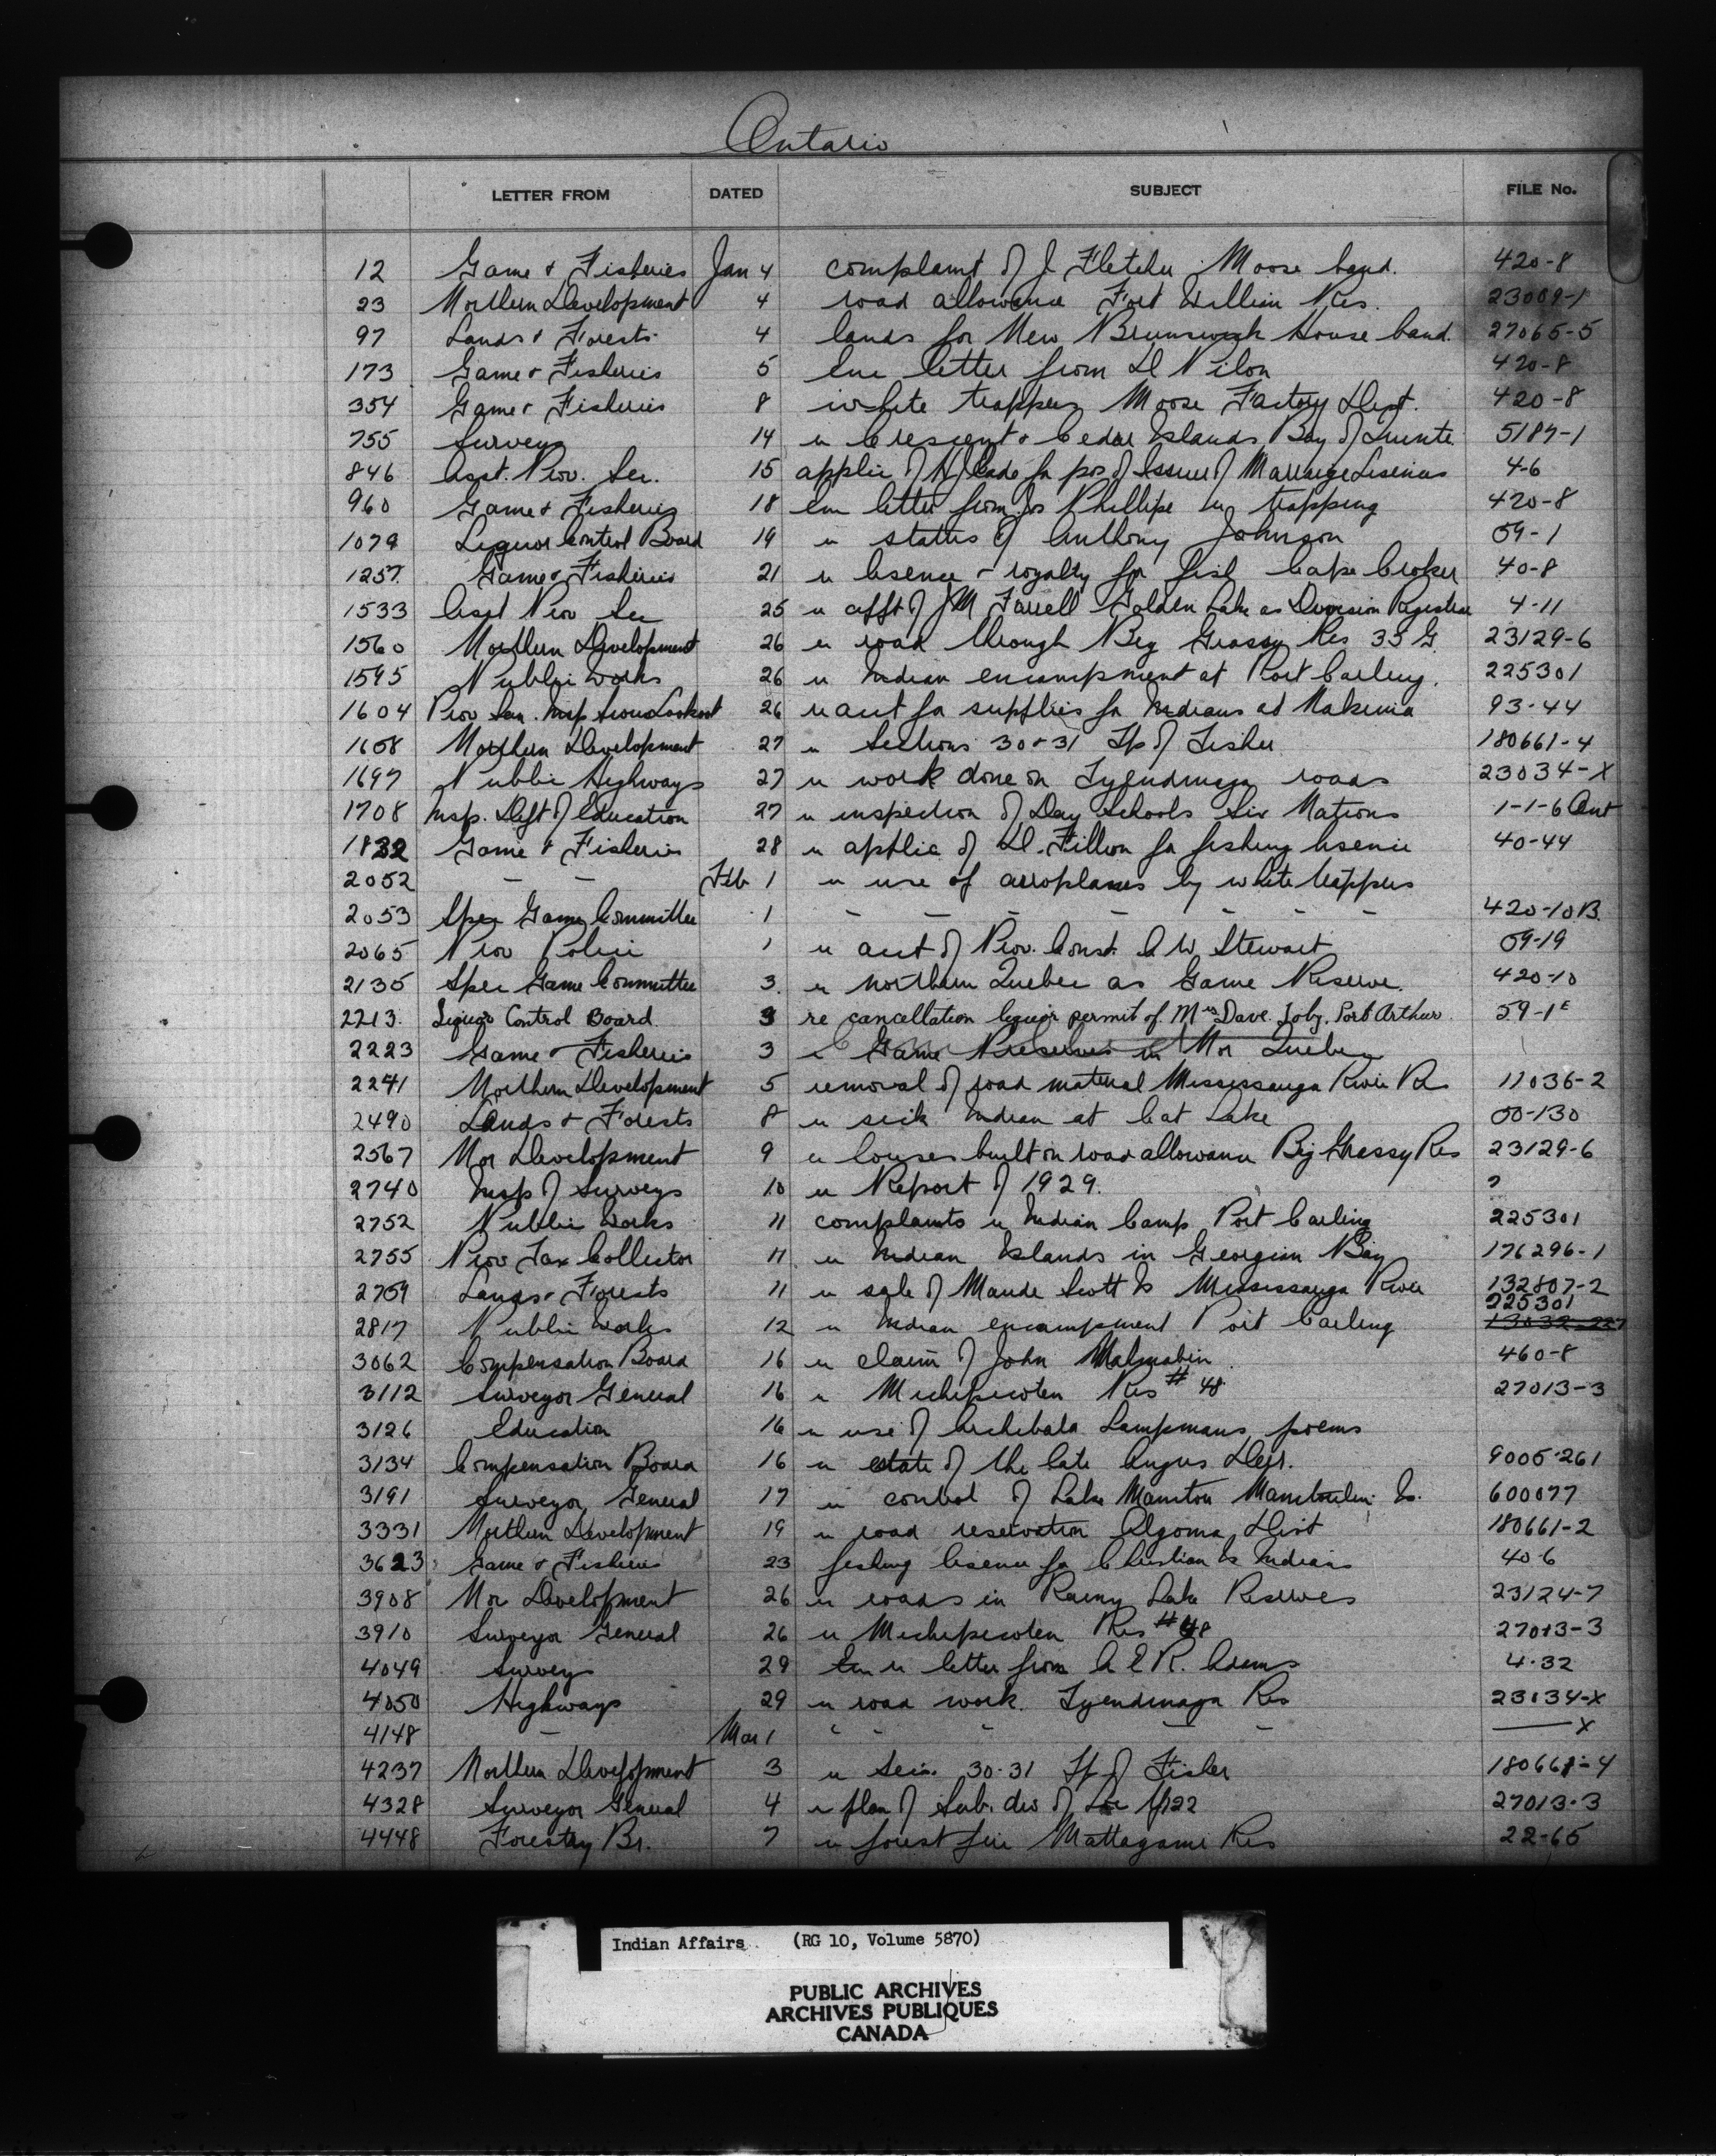 Ontario
LETTER FROM DATED SUBJECT FILE No.
12 Game & Fisheries Jan 4 complaint of J Fletcher Moose band. 420-8
23 Northern Development 4 road allowance Fort William Res. 23009-1
97 Lands & Forests 4 lands for New Brunswick House band. 27065-5
173 Game & Fisheries 5 letter from D 420-8
354 Game & Fisheries 8 white trappers Moose Factory Dist. 420-8
755 Surveys 14 re Crescent & Cedar Islands Bay of Quinte 5187-1
846 Asst. Prov. Sec. 15 applic of for pos of Issuer of Marriage Lisences 4-6
960 Game & Fisheries 18 letter from Jos Phillipe re trapping 420-8
1079 Liquor Control Board 19 re status of Anthony Johnson 59-1
1257 Game & Fisheries 21 re lisence & royalty for fish Cape Croker 40-8
1533 Asst Prov Sec 25 re appt of J M Farrell Golden Lake as Division Registrar 4-11
1560 Northern Development 26 re road through Big Grassy Res 35 G. 23129-6
1595 Public Works 26 re Indian encampment at Port Carling. 225301
1604 Prov San. Insp Sioux Lookout 26 re acct for supplies for Indians at Nakina 93-44
1658 Northern Development 27 re Sections 30 & 31 Tp of Fisher 180661-4
1697 Public Highways 27 re work done on Tyendinaga roads 23034-X
1708 Insp. Dept of Education 27 re inspection of Day Schools Six Nations 1-1-6 Ont
1832 Game & Fisheries 28 re applic of D. Fillion for fishing lisence 40-44
2052 — — Feb 1 re use of aeroplanes by white trappers
2053 Spec Game Committee 1 - - - - - - - 420-10B.
2065 Prov Police 1 re acct of Prov. Const. C W Stewart 59-19
2135 Spec Game Committee 3. re northern Quebec as Game Reserve. 420-10
2213. Liquor Control Board. 3 re cancellation liquor permit of Mrs Dave Toby, Port Arthur. 59-1
2223 Game & Fisheries 3 re Game Preserves in Nor Quebec
2241 Northern Development 5 removal of road material Mississauga River Res 11036-2
2490 Lands & Forests 8 re sick Indian at Cat Lake 50-130
2567 Nor Development 9 re houses built on road allowance Big Grassy Res 23129-6
2740 Insp of Surveys 10 re Report of 1929. ?
2752 Public Works 11 complaints re Indian Camp Port Carling 225301
2755 Prov Tax Collector 11 re Indian Islands in Georgian Bay 176296-1
2759 Lands & Forests 11 re sale of Maude Scott to Mississauga River 132807-2
2817 Public Works 12 re Indian encampment Port Carling 225301
3062 Compensation Board 16 re claim of John 460-8
3112 Surveyor General 16 re Michipicoten Res # 48 27013-3
3126 Education 16 re use of Archibald Lampmans poems
3134 Compensation Board 16 re estate of the late Angus 9005-261
3191 Surveyor General 17 re control of Lake Manitou Manitoulin Is. 600077
3331 Northern Development 19 re road reservation Algoma Dist 180661-2
3623 Game & Fisheries 23 fishing lisence for Christian Is Indians 40-6
3908 Nor Development 26 re roads in Rainy Lake Reserves 23124-7
3910 Surveyor General 26 re Michipicoten Res # 48 27013-3
4049 Surveys 29 re letter from A E R. Adams 4-32
4050 Highways 29 re road work. Tyendinaga Res 23034-X
4148 — Mar 1 " - - — - — X
4237 Northern Development 3 re Secs. 30-31 Tp of Fisher 180661-4
4328 Surveyor General 4 re plan of Sub. div of 27013-3
4448 Forestry Br. 7 re forest fire Mattagami Res 22-65
Indian Affairs (RG 10, Volume 5870)
PUBLIC ARCHIVES
ARCHIVES PUBLIQUES
CANADA